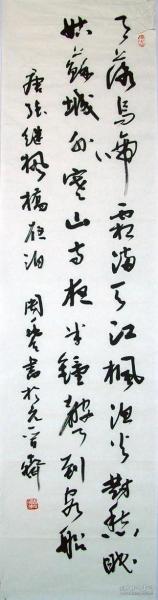 月落乌啼霜满天江枫渔火对愁眠
姑苏城外寒山寺夜半钟声到客船
唐张继枫桥夜泊
书于